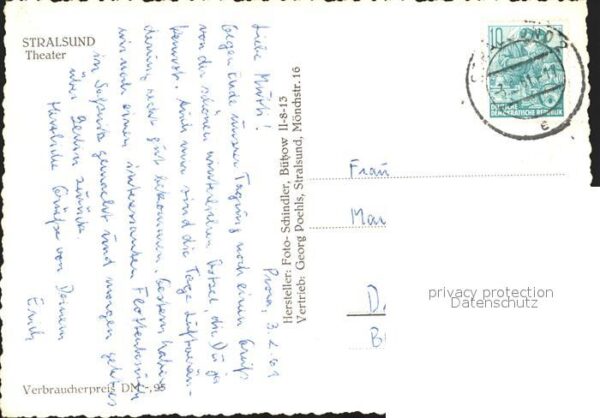 STRALSUND
Theater
Prora, 3.2.61
Liebe Mutti!
Gegen Ende unserer Tagung noch einen Gruß
von der schönen winterlichen Ostsee, die Du ja
kennst. Auch mir sind die Tage Luftverän-
derung recht gut bekommen. Gestern haben
wir noch einen interessanten Flottenbesuch
im gemacht und morgen geht es
über Berlin zurück.
Herzliche Grüße von Deinem
Erich
Verbraucherpreis DM -,95
Hersteller: Foto-Schindler, Bützow II-8-13
Vertrieb: Georg Poehls, Stralsund, Mönchstr. 16
10
DEUTSCHE
DEMOKRATISCHE REPUBLIK
Frau
Mar
D
B
privacy protection
Datenschutz